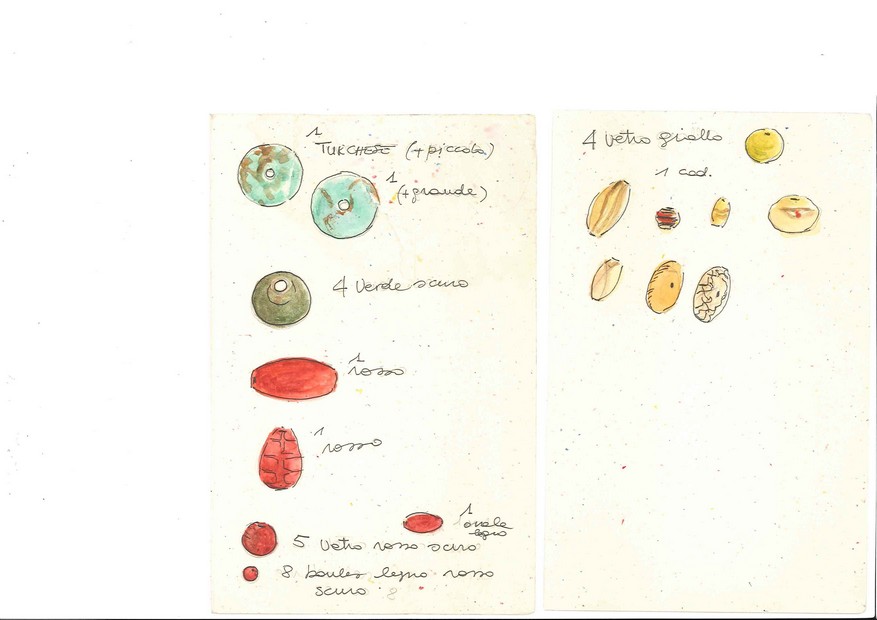 1
TURCHESE (+piccola)
1
(+grande)
4 verde scuro
1
rosso
1
rosso
1
ovale
legno
5 vetro rosso scuro
8 boules legno rosso
scuro 8
4 vetro giallo
1 cad.